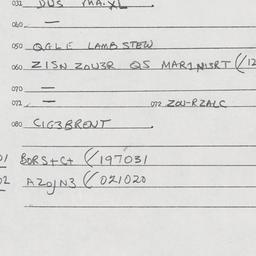 032 DUS MA.XL
040 —
050 QGLE LAMB STEW
060 ZISN ZOU3R QS MAR1NI3RT (/12
070 —
071 — 072 ZOU-RZALC
080 CIG3BRENT
01 BORS+C+ (/197031
02 AZOJN3 (/021020